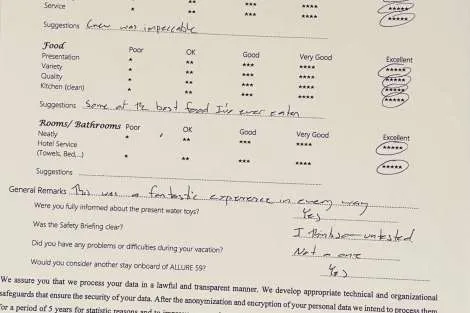 Service * ** *** **** *****
Suggestions Crew was impeccable
Food Poor OK Good Very Good Excellent
Presentation * ** *** **** *****
Variety * ** *** **** *****
Quality * ** *** **** *****
Kitchen (clean) * ** *** **** *****
Suggestions Some of the best food I've ever eaten
Rooms/ Bathrooms Poor OK Good Very Good Excellent
Neatly * ** *** **** *****
Hotel Service
(Towels, Bed,..) * ** *** **** *****
Suggestions
General Remarks This was a fantastic experience in every way
Were you fully informed about the present water toys? Yes
Was the Safety Briefing clear? I think so untested
Did you have any problems or difficulties during your vacation? Not a one
Would you consider another stay onboard of ALLURE 59? Yes
We assure you that we process your data in a lawful and transparent manner. We develop appropriate technical and organizational
safeguards that ensure the security of your data. After the anonymization and encryption of your personal data we intend to process them
for a period of 5 years for statistic reasons and to